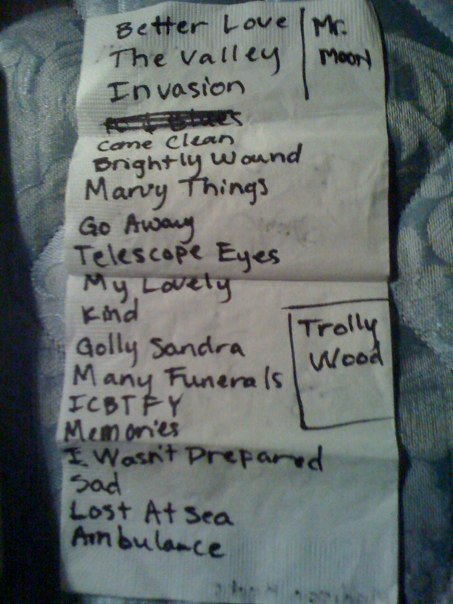 Better Love
The Valley
Invasion
Mr.
Moon
Come Clean
Brightly Wound
Marvy Things
Go Away
Telescope Eyes
My Lovely
Kind
Golly Sandra
Many Funerals
ICBTFY
Memories
I Wasn't Prepared
Sad
Lost At Sea
Ambulance
Trolly
Wood